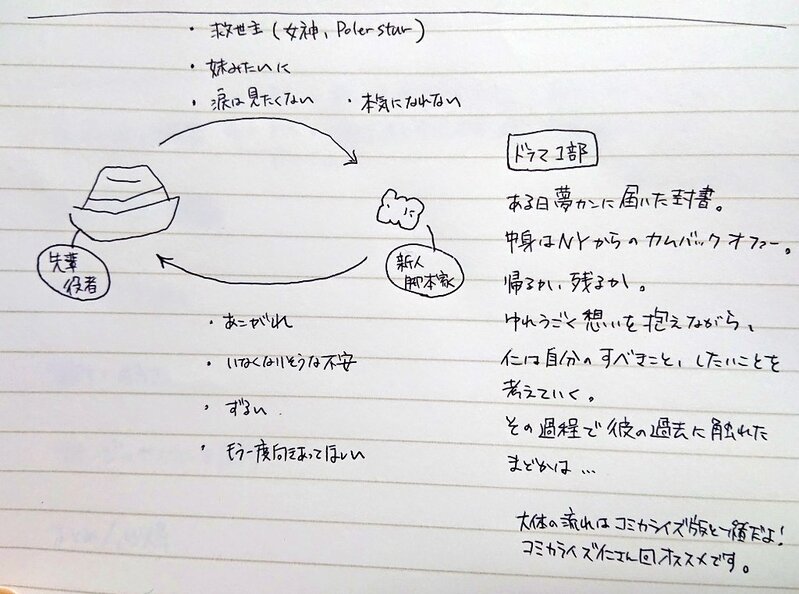 ・救世主(女神、Poler stur)
・妹みたいに
・涙は見たくない ・本気になれない
先輩
役者
新人
脚本家
・あこがれ
・いなくなりそうな不安
・ずるい
・もう一度向きあってほしい
ドラマ1部
ある日夢カンに届いた封書。
中身はNYからのカムバックオファー。
帰るか、残るか。
ゆれうごく想いを抱えながら、
仁は自分のすべきこと、したいことを
考えていく。
その過程で彼の過去に触れた
まどかは…
大体の流れはコミカライズ版と一緒だよ!
コミカライズ仁さん回オススメです。